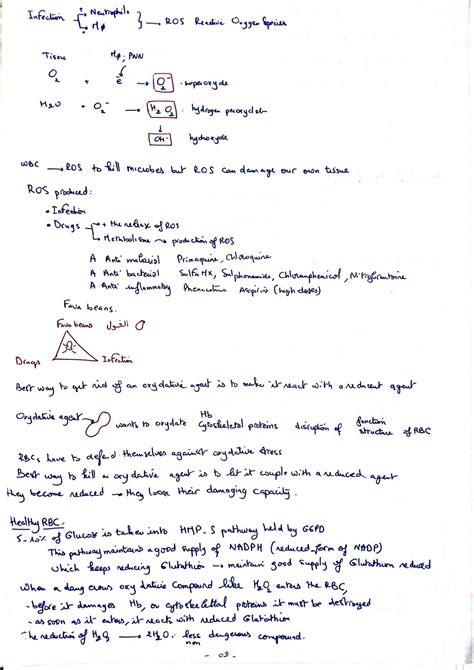 Infection → + Neutrophils
→ + MΦ } → ROS Reactive Oxygen Species
Tissue MΦ, PNN
O2 + e- → O2- superoxyde
H2O + O2- → H2O2 hydrogen peroxyde
↓
OH- hydroxyde
WBC → ROS to kill microbes but ROS can damage our own tissue
ROS produced:
• Infection
• Drugs → + the release of ROS
→ Metabolisme → production of ROS
A Anti malarial Primaquine, Chloroquine
A Anti bacterial SulfaMx, Sulphonamides, Chloramphenicol, Nitrofurantoine
A Anti inflammatory Phenacetine Aspirin (high doses)
Fava beans.
Fava beans الفول
Drugs Infection
Best way to get rid of an oxydative agent is to make it react with a reducent agent
Oxydative agent wants to oxydate Hb Cytoskeletal proteins disruption of function structure of RBC
RBCs have to defend themselves against oxydative stress
Best way to kill a oxydative agent is to let it couple with a reduced agent
they become reduced → they loose their damaging capacity.
Healthy RBC:
5-10% of Glucose is taken into HMP-S pathway held by G6PD
This pathway maintains a good supply of NADPH (reduced form of NADP)
Which keeps reducing Glutathion → maintain good supply of Glutathion reduced
When a dangerous oxydative compound like H2O2 enters the RBC,
- before it damages Hb, or cytoskeletal proteins it must be destroyed
- as soon as it enters, it reacts with reduced Glutathion
The reduction of H2O2 → 2H2O. less non dangerous compound.